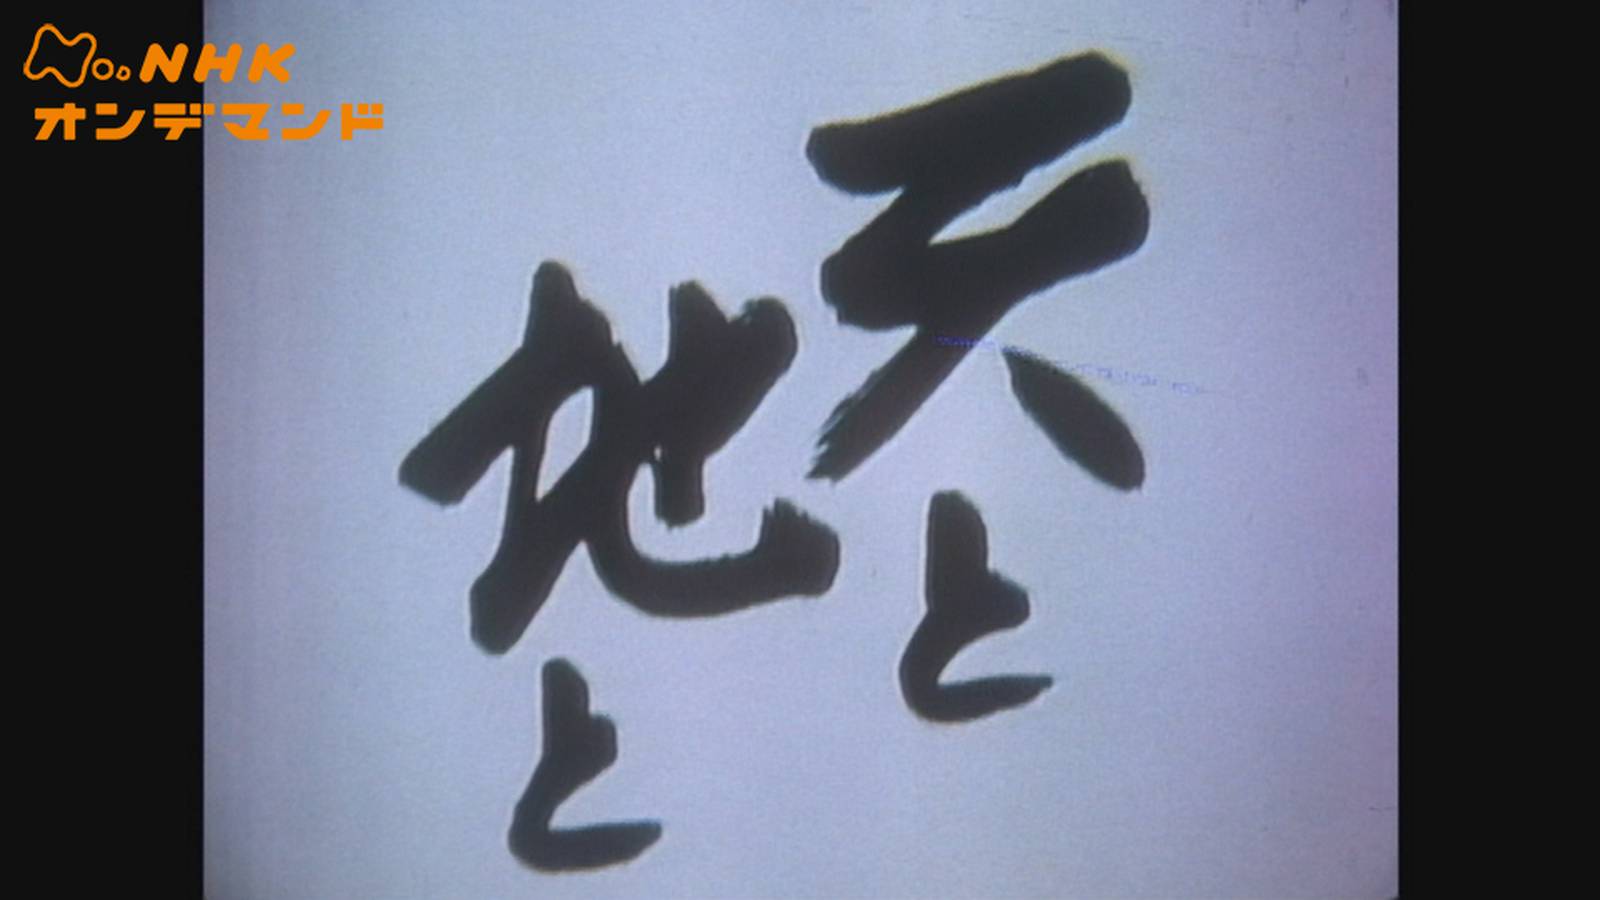 NHK
オンデマンド
天と
地と